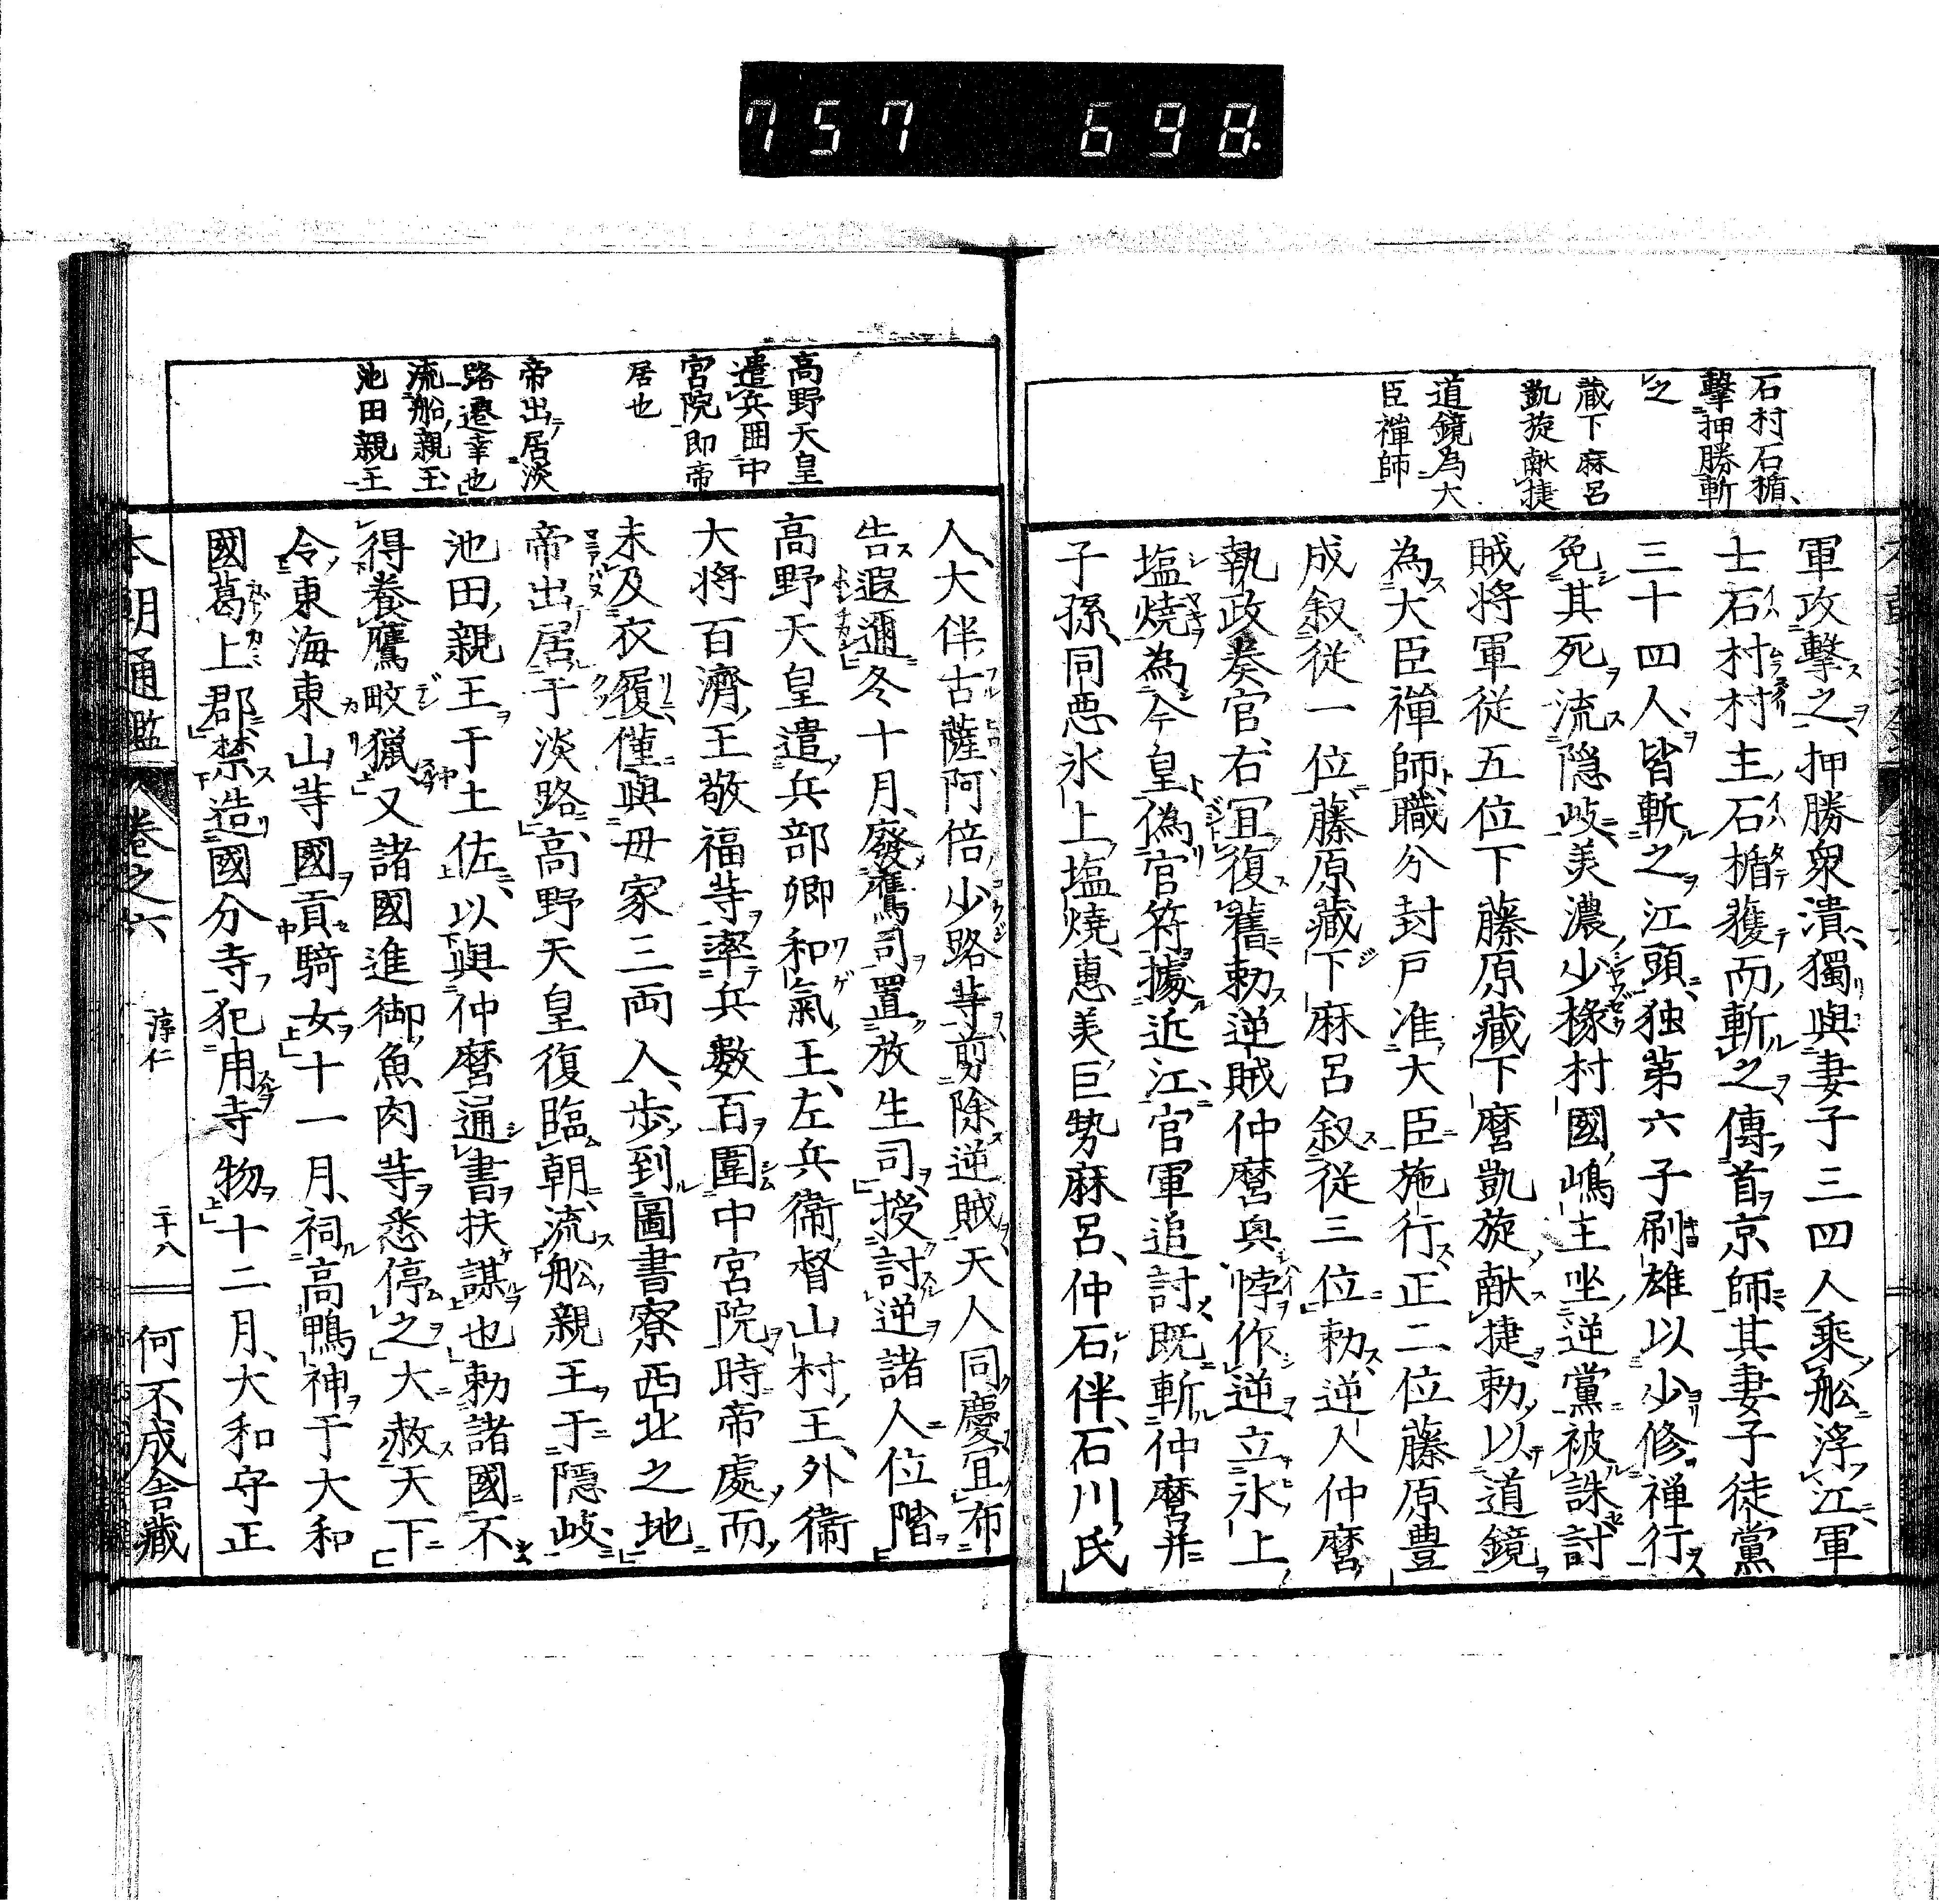 757 698.
石村石楯
擊押勝斬
之
蔵下麻呂
凱旋献捷
道鏡為大
臣禅師
軍攻擊之押勝衆潰獨與妻子三四人乘舩浮江軍
士石村村主石楯獲而斬之傳首京師其妻子徒黨
三十四人皆斬之江頭独第六子刷雄以少修禅行
免其死流隠岐美濃少掾村國嶋主坐逆黨被誅討
賊将軍従五位下藤原蔵下麿凱旋献捷勅以道鏡
為大臣禅師職分封戸准大臣施行正二位藤原豊
成叙従一位藤原蔵下麻呂叙従三位勅逆人仲麿
執政奏官右冝復舊勅逆賊仲麿與悖作逆立氷上
塩焼為今皇偽官符據近江官軍追討既斬仲麿并
子孫同悪氷上塩焼惠美巨勢麻呂仲石伴石川氏
高野天皇
遣兵囲中
宮院即帝
居也
帝出居淡
路遷幸也
流船親王
池田親王
人大伴古薩阿倍少路等剪除逆賊天人同慶冝布
告遐邇冬十月廢鷹司置放生司授討逆諸人位階
高野天皇遣兵部卿和氣王左兵衛督山村王外衛
大将百濟王敬福等率兵數百圍中宮院時帝處而
未及衣履僅與母家三両人歩到圖書寮西北之地
帝出居于淡路高野天皇復臨朝流舩親王于隠岐
池田親王于土佐以與仲麿通書扶謀也勅諸國不
得養鷹畋獵又諸國進御魚肉等悉停之大赦天下
令東海東山等國貢騎女十一月祠高鴨神于大和
國葛上郡禁造國分寺犯用寺物十二月大和守正
本朝通鑑 卷之六 淳仁 二十八 何不成舎蔵